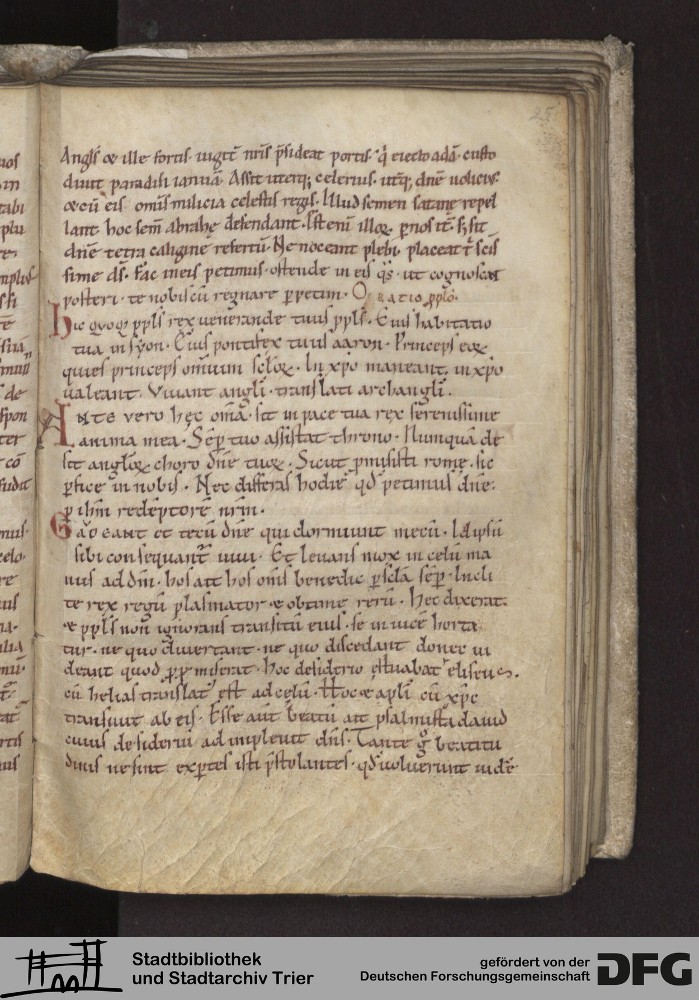 25
Angl's & ille fortis. uigit' nr̄is p̄sideat portis. q' eiecto adā. custo
diuit paradisi ianuā. Assit uterq; celerius. utq; dn̄e uolueris.
& cū eis omīs milicia celestis regis. Illud semen satanę repel
lant hoc sem̄ abrahę defendant.
dn̄e tetra caligine refertū. Ne noceant plebi. placeat
sime ds̄. Fac meis petimus. ostende in eis qs̄. ut cognoscat
posteri. te nobiscū regnare ꝑpetim. Oratio ꝓ plo.
Hic quoq; ppl's rex uenerande tuus ppl's. Eius habitatio
tua in syon. Eius pontifex tuus aaron. Princeps eoꝝ
quies princeps omīum scl'oꝝ. In xp̄o maneant. in xp̄o
ualeant. Viuant angl'i. translati archangl'i.
Ante vero hęc om̄a. sit in pace tua rex serenissime
anima mea. Sēp tuo assistat throno. Numquā de
sit angl'oꝝ choro dn̄e tuoꝝ. Sicut ꝓmisisti romę. sic
ꝑfice in nobis. Nec differas hodie qd̄ petimus dn̄e.
ꝑ ih̄m redēptorē nr̄m.
Gaudeant et tecū dn̄e qui dormiunt mecū. Id ipsū
sibi consequant' uiui. Et leuans mox in celū ma
nus ad dn̄m. hos ait hos omīs benedic ꝑ scl'a sēp. Incli
te rex regū plasmator & obtime rerū. Hec dixerat.
& ppl's non ignorans transitū eius. se in uicē horta
tur. ne quo diuertant. ne quo discedant donec ui
deant quod ꝓpmiserat. Hoc desiderio ęstuabat eliseus.
cū helias translat' est ad cęlū. Hoc & apl'i cū xp̄c
transiuit ab eis. Esse aūt beatū ait psalmista dauid
cuius desideriū adimpleuit dn̄s. Tante g° beatitu
dinis ne sint exꝑtes isti p̄stolantes. qd̄ uoluerunt uidē
Stadtbibliothek
und Stadtarchiv Trier
gefördert von der
Deutschen Forschungsgemeinschaft
DFG